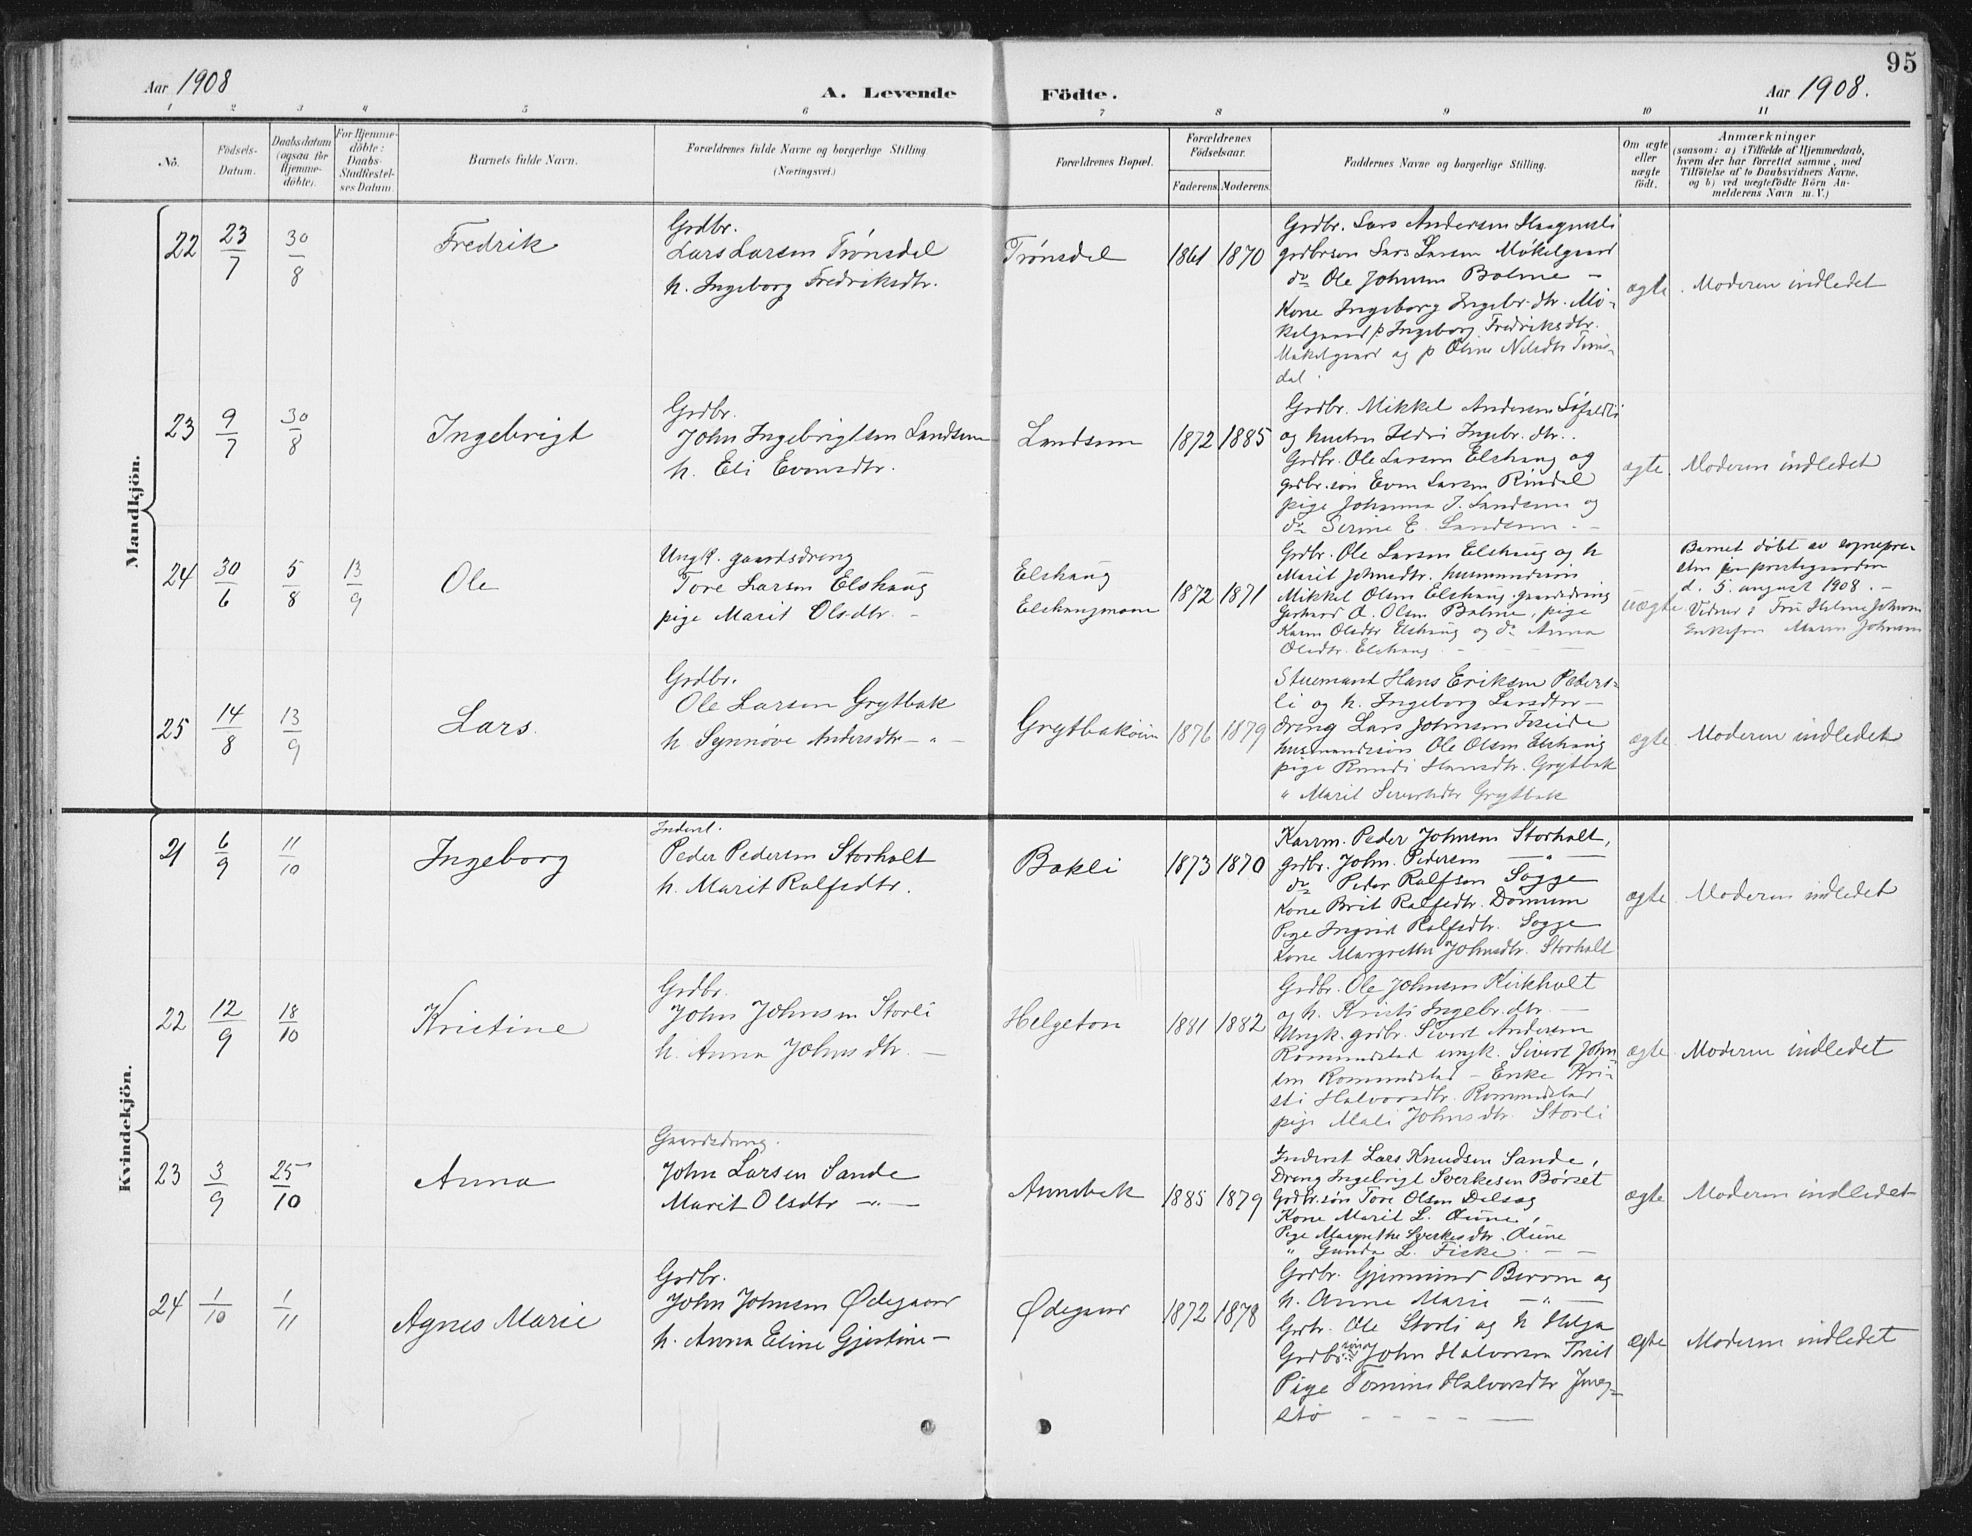 95
Aar 1908
A. Levende Födte.
Aar 1908.
1 2 3 4 5 6 7 8 9 10 11
No.
Födsels-
Datum.
Daabsdatum
(ogsaa for
Hjemme-
döbte).
For Hjemme-
döbte:
Daabs-
Stadfæstel-
ses Datum.
Barnets fulde Navn.
Forældrenes fulde Navne og borgerlige Stilling
(Næringsvei.)
Forældrenes Bopæl.
Forældrenes
Födselsaar.
Faderens. Moderens.
Faddernes Navne og borgerlige Stilling.
Om ægte
eller
uægte
födt.
Anmærkninger
(saasom: a) i Tilfælde af Hjemmedaab,
hvem der har forrettet samme, med
Tilföielse af to Daabsvidners Navne,
og b) ved uægtefödte Börn An-
melderens Navn m. V.)
Mandkjön.
22 23/7 30/8 Fredrik
Grdbr.
Lars Larsen Trønsdal
h. Ingeborg Fredriksdtr.
Trønsdal 1861 1870
Grdbr. Lars Andersen
grdbrsøn Lars Larsen Møkelgaard
do Ole Johnsen Bolme –
Kone Ingeborg Ingebr.dtr. Mø-
kelgaard p Ingeborg Fredriksdtr.
Møkelgaard og p Oline Nilsdtr Trøns-
dal.
ægte. Moderen indledet
23 9/7 30/8 Ingebrigt
Grdbr.
John Ingebrigtsen Landsem
h. Eli Evensdtr.
Landsem 1872 1885
Grdbr. Mikkel Andersen
og hustru Ildri Ingebr.dtr..
Grdbr. Ole Larsen Elshaug og
grdbr.søn Even Larsen Rindal
pige Johanna J. Landsem og
do Serine E. Landsem. –
ægte. Moderen indledet
24 30/6 5/8 13/9 Ole
Ungk. gaardsdreng
Tore Larsen Elshaug
pige Marit Olsdtr. –
Elshaug
Elshaugmoen
1872 1871
Grdbr. Ole Larsen Elshaug og h
Marit Johnsdtr. husmandssøn
Mikkel Olsen Elshaug. gaardsdreng
Gerhard O. Olsen Bolme, pige
Karen Olsdtr Elshaug og do Anna
Olsdtr. Elshaug
uægte
Barnet døbt av sognepre-
sten paa præstegaarden
d. 5. august 1908. –
Vidner: Fru Helma Johnsen
Enkefru Maren Johnsen
25 14/8 13/9 Lars
Grdbr.
Ole Larsen Grytbak
h Synnøve Andersdtr – " –
Grytbakøien 1876 1879
Stuemand Hans Eriksen Pæders-
li og h. Ingeborg Larsdtr –
dreng Lars Johnsen Foseide
husmandssøn Ole Olsen Elshaug
pige Randi Hansdtr. Grytbak
" Marit Sivertsdtr Grytbak
ægte Moderen indledet
Kvindekjön.
21 6/9 11/10 Ingeborg
Inderst.
Peder Pedersen Storholt
h. Marit Rolfsdtr.
Bakli 1873 1870
Kaarm. Peder Johnsen Storholt,
grdbr. John. Pedersen – " –
do Peder Rolfsen Sogge
Kone Brit Rolfsdtr. Dønnem
Pige Ingrid Rolfsdtr. Sogge
Kone Margrethe Johnsdtr. Storholt
ægte Moderen indledet
22 12/9 18/10 Kristine
Grdbr.
John Johnsen Storli
h. Anna Johnsdtr. –
Helgeton 1881 1882
Grdbr. Ole Johnsen Kirkholt
og h. Kristi Ingebr.dtr. –
Ungk. grdbr. Sivert Andersen
Romundstad ungk. Sivert John-
sen Romundstad – Enke Kri-
sti Halvorsdtr. Romundstad
pige Mali Johnsdtr. Storli
ægte. Moderen indledet
23 3/9 25/10 Anna
Gaardsdreng.
John Larsen Sande
Marit Olsdtr – " –
Aunebak 1885 1879
Inderst Lars Knudsen Sande,
Dreng Ingebrigt Sverkesen Børset
Grdbr.søn Tore Olsen Dalsæg
Kone Marit L. Aune,
Pige Margrethe Sverkesdtr. Aune
" Gunda L. Fiske. – –
ægte Moderen indledet
24 1/10 1/11 Agnes Marie
Grdbr.
John Johnsen Ødegaard
h. Anna Eline Gjertine –
Ødegaard 1872 1878
Grdbr. Gjermund Baaom og
h. Anne Marie – " –
Grdbr. Ole Storli og h Helga
Grdbr.søn John Halvorsen
Pige Tomine Halvorsdtr
stø
ægte Moderen indledet